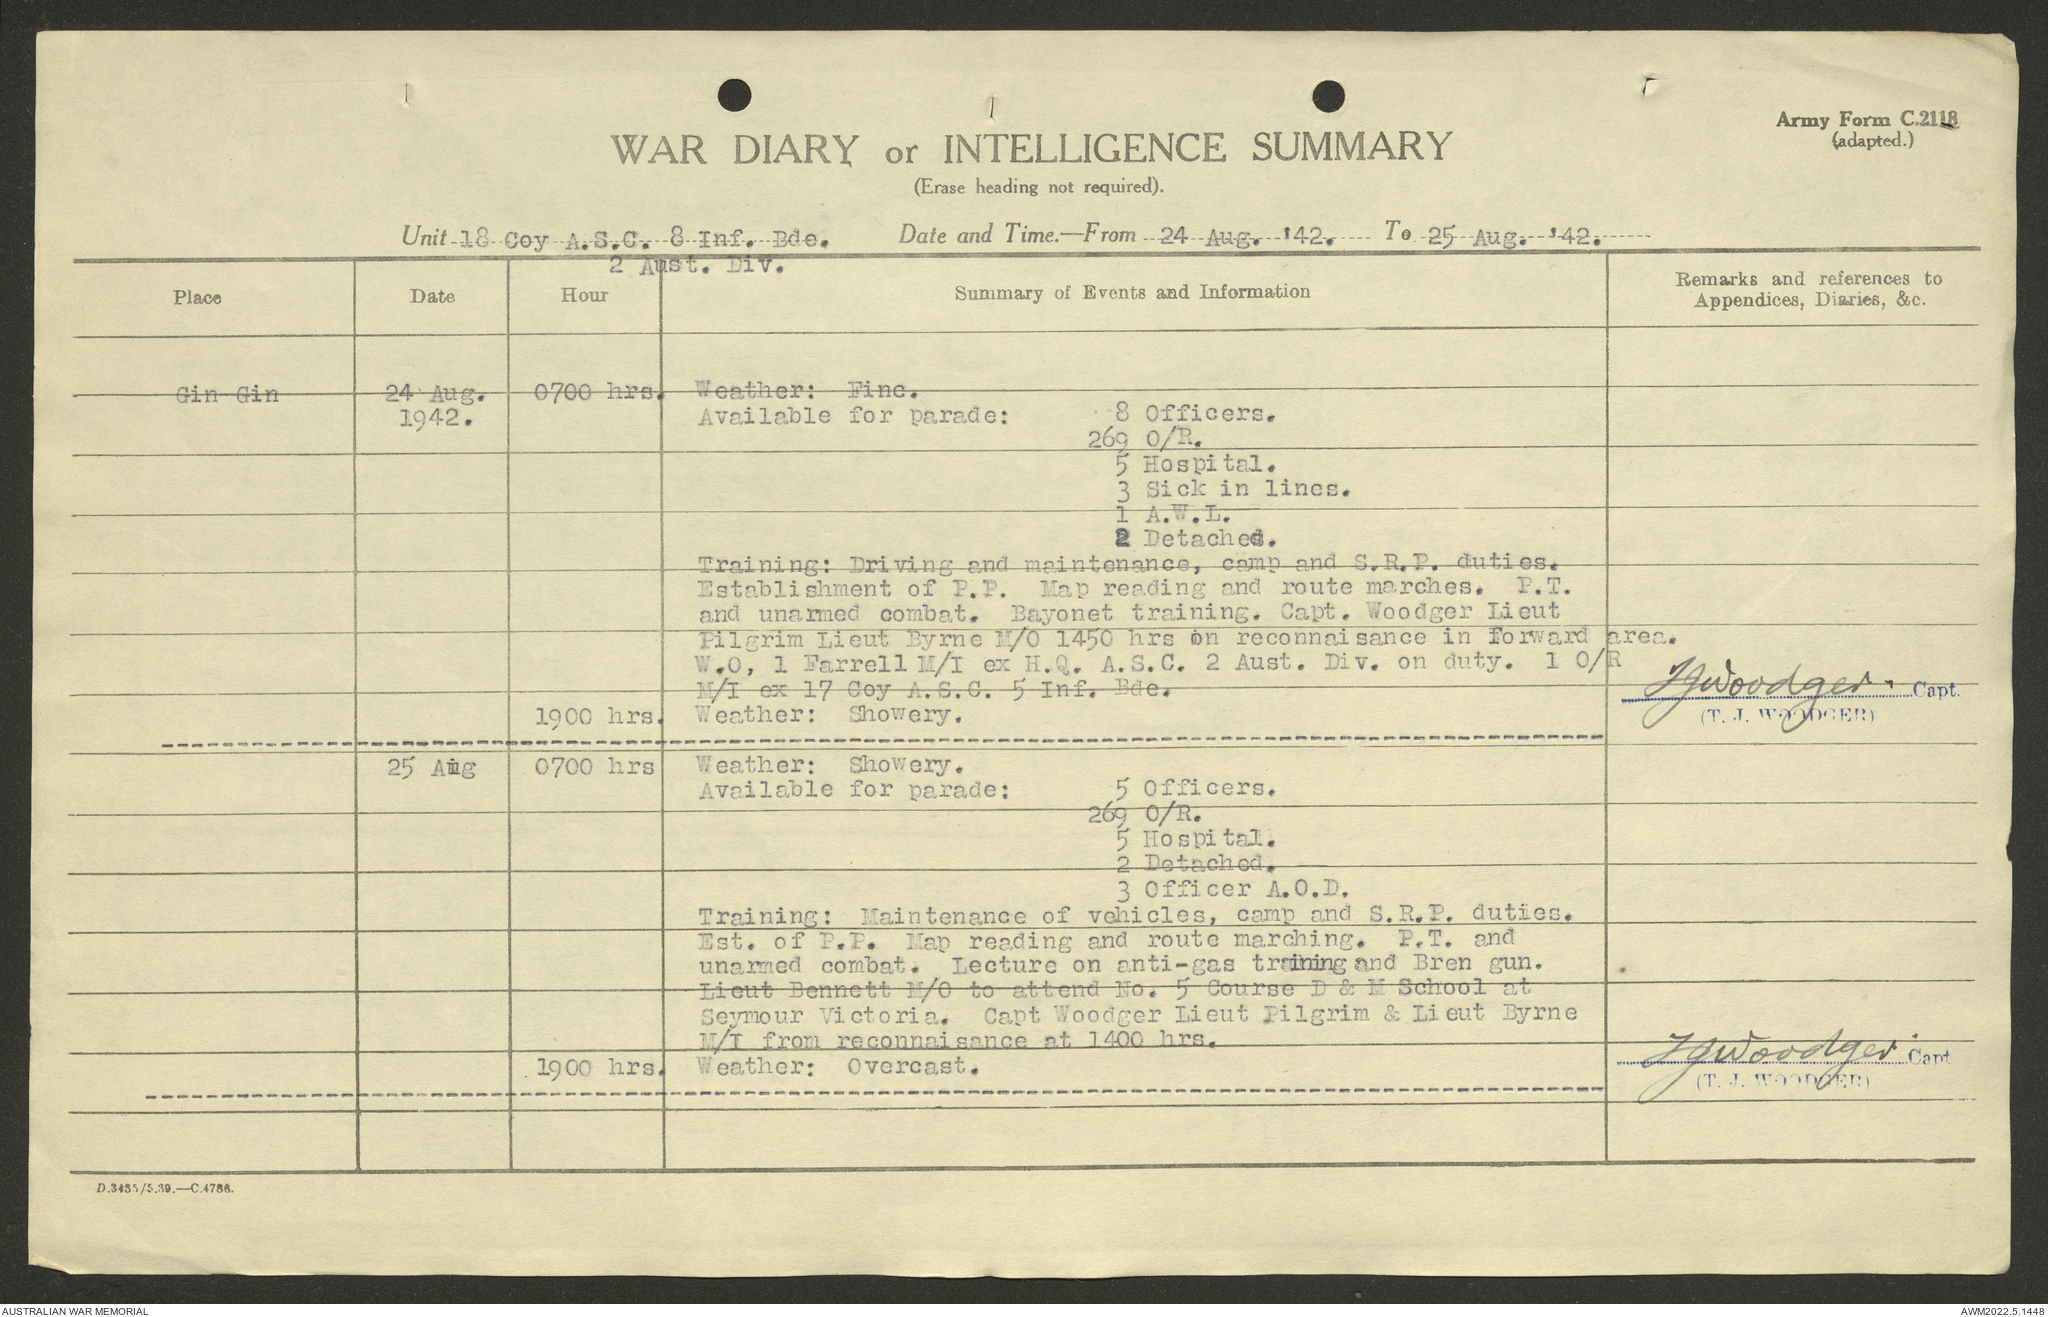 Army Form C.2118
(adapted.)
WAR DIARY or INTELLIGENCE SUMMARY
(Erase heading not required).
Unit 18 Coy A.S.C. 8 Inf. Bde. Date and Time.—From 24 Aug. '42. To 25 Aug. '42.
2 Aust. Div.
Place Date Hour Summary of Events and Information Remarks and references to
Appendices, Diaries, &c.
Gin Gin 24 Aug. 0700 hrs. Weather: Fine.
1942. Available for parade: 8 Officers.
269 O/R.
5 Hospital.
3 Sick in lines.
1 A.W.L.
2 Detached.
Training: Driving and maintenance, camp and S.R.P. duties.
Establishment of P.P. Map reading and route marches. P.T.
and unarmed combat. Bayonet training. Capt. Woodger Lieut
Pilgrim Lieut Byrne M/O 1450 hrs on reconnaisance in forward area.
W.O, 1 Farrell M/I ex H.Q. A.S.C. 2 Aust. Div. on duty. 1 O/R
M/I ex 17 Coy A.S.C. 5 Inf. Bde.
TJWoodger. Capt.
(T. J. WOODGER)
1900 hrs. Weather: Showery.
25 Aug 0700 hrs Weather: Showery.
Available for parade: 5 Officers.
269 O/R.
5 Hospital.
2 Detached.
3 Officer A.O.D.
Training: Maintenance of vehicles, camp and S.R.P. duties.
Est. of P.P. Map reading and route marching. P.T. and
unarmed combat. Lecture on anti-gas training and Bren gun.
Lieut Bennett M/O to attend No. 5 Course D & M School at
Seymour Victoria. Capt Woodger Lieut Pilgrim & Lieut Byrne
M/I from reconnaisance at 1400 hrs.
TJWoodger Capt
(T. J. WOODGER)
1900 hrs. Weather: Overcast.
D.3435/5.39.—C.4786.
AUSTRALIAN WAR MEMORIAL
AWM2022.5.1448